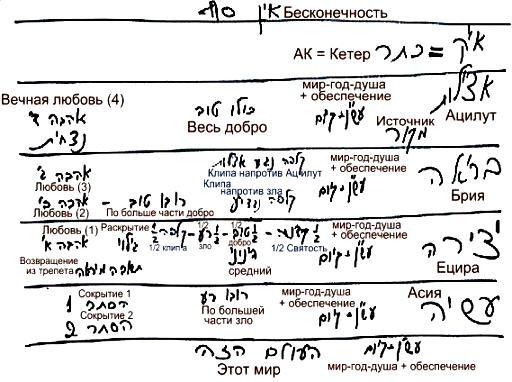 אין סוף Бесконечность
АК = Кетер כתר = א״ק
Вечная любовь (4) мир-год-душа
+ обеспечение אצילות
אהבה ד' כולו טוב עש"ן-קיום Источник Ацилут
נצחית Весь добро מקור
קליפה נגד אצילות мир-год-душа
+ обеспечение בריאה
אהבה ג' Клипа напротив Ацилут
Любовь (3) Клипа
напротив зла עש"ן-קיום Брия
אהבה ב' - רובו טוב
Любовь (2) По больше части добро
Любовь (1) Раскрытие 1/2 1/2 мир-год-душа
+ обеспечение יצירה
אהבה א' גילוי 1/2 קליפה - 1/2 רע - 1/2 טוב - 1/2 קדושה עש"ן-קיום
1/2 клипа зло добро 1/2 Святость
Возвращение
из трепета תשובה מיראה בינוני средний Ецира
Сокрытие 1 רובו רע мир-год-душа
+ обеспечение Асия
1 הסתר По большей
части зло עש"ן-קיום עשיה
Сокрытие 2
2 הסתר
העולם הזה עש"ן-קיום
Этот мир мир-год-душа + обеспечение